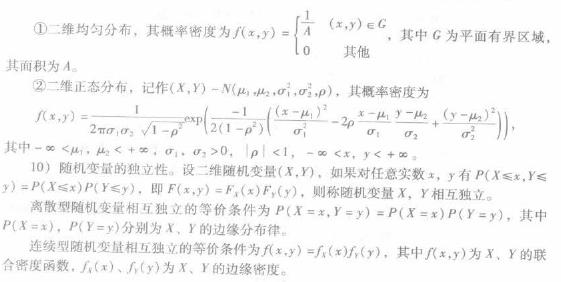 ①二维均匀分布，其概率密度为f(x,y)={1/A (x,y)∈G; 0 其他，其中 G 为平面有界区域，
其面积为 A。
②二维正态分布，记作(X,Y)~N(μ₁,μ₂,σ₁²,σ₂²,ρ)，其概率密度为
f(x,y)=1/(2πσ₁σ₂√(1-ρ²))exp(-1/(2(1-ρ²))((x-μ₁)²/σ₁²-2ρ (x-μ₁)/σ₁ (y-μ₂)/σ₂+(y-μ₂)²/σ₂²))，
其中-∞<μ₁，μ₂<+∞，σ₁，σ₂>0，|ρ|<1，-∞<x，y<+∞。
10）随机变量的独立性。设二维随机变量(X,Y)，如果对任意实数x，y有P(X≤x,Y≤
y)=P(X≤x)P(Y≤y)，即F(x,y)=F_X(x)F_Y(y)，则称随机变量X，Y相互独立。
离散型随机变量相互独立的等价条件为P(X=x,Y=y)=P(X=x)P(Y=y)，其中
P(X=x)，P(Y=y)分别为X、Y的边缘分布律。
连续型随机变量相互独立的等价条件为f(x,y)=f_X(x)f_Y(y)，其中f(x,y)为X、Y的联
合密度函数，f_X(x)、f_Y(y)为X、Y的边缘密度。